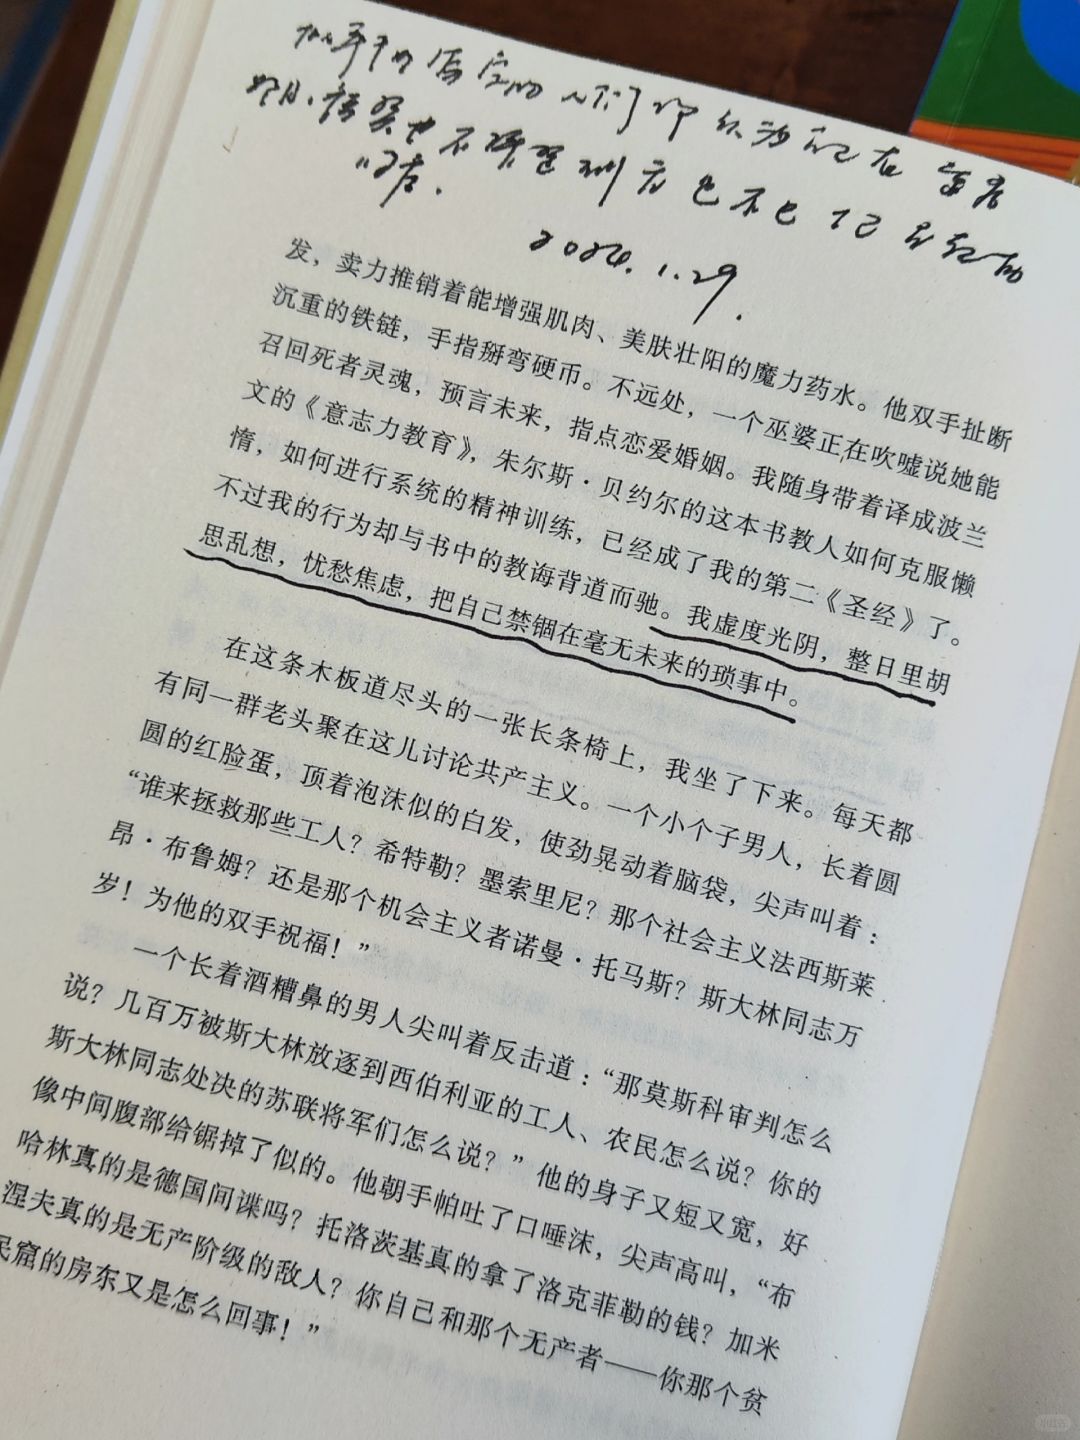 2024.1.29.
发，卖力推销着能增强肌肉、美肤壮阳的魔力药水。他双手扯断
沉重的铁链，手指掰弯硬币。不远处，一个巫婆正在吹嘘说她能
召回死者灵魂，预言未来，指点恋爱婚姻。我随身带着译成波兰
文的《意志力教育》，朱尔斯·贝约尔的这本书教人如何克服懒
惰，如何进行系统的精神训练，已经成了我的第二《圣经》了。
不过我的行为却与书中的教诲背道而驰。我虚度光阴，整日里胡
思乱想，忧愁焦虑，把自己禁锢在毫无未来的琐事中。
在这条木板道尽头的一张长条椅上，我坐了下来。每天都
有同一群老头聚在这儿讨论共产主义。一个小个子男人，长着圆
圆的红脸蛋，顶着泡沫似的白发，使劲晃动着脑袋，尖声叫着：
“谁来拯救那些工人？希特勒？墨索里尼？那个社会主义法西斯莱
昂·布鲁姆？还是那个机会主义者诺曼·托马斯？斯大林同志万
岁！为他的双手祝福！”
一个长着酒糟鼻的男人尖叫着反击道：“那莫斯科审判怎么
说？几百万被斯大林放逐到西伯利亚的工人、农民怎么说？你的
斯大林同志处决的苏联将军们怎么说？”他的身子又短又宽，好
像中间腹部给锯掉了似的。他朝手帕吐了口唾沫，尖声高叫，“布
哈林真的是德国间谍吗？托洛茨基真的拿了洛克菲勒的钱？加米
涅夫真的是无产阶级的敌人？你自己和那个无产者——你那个贫
民窟的房东又是怎么回事！”